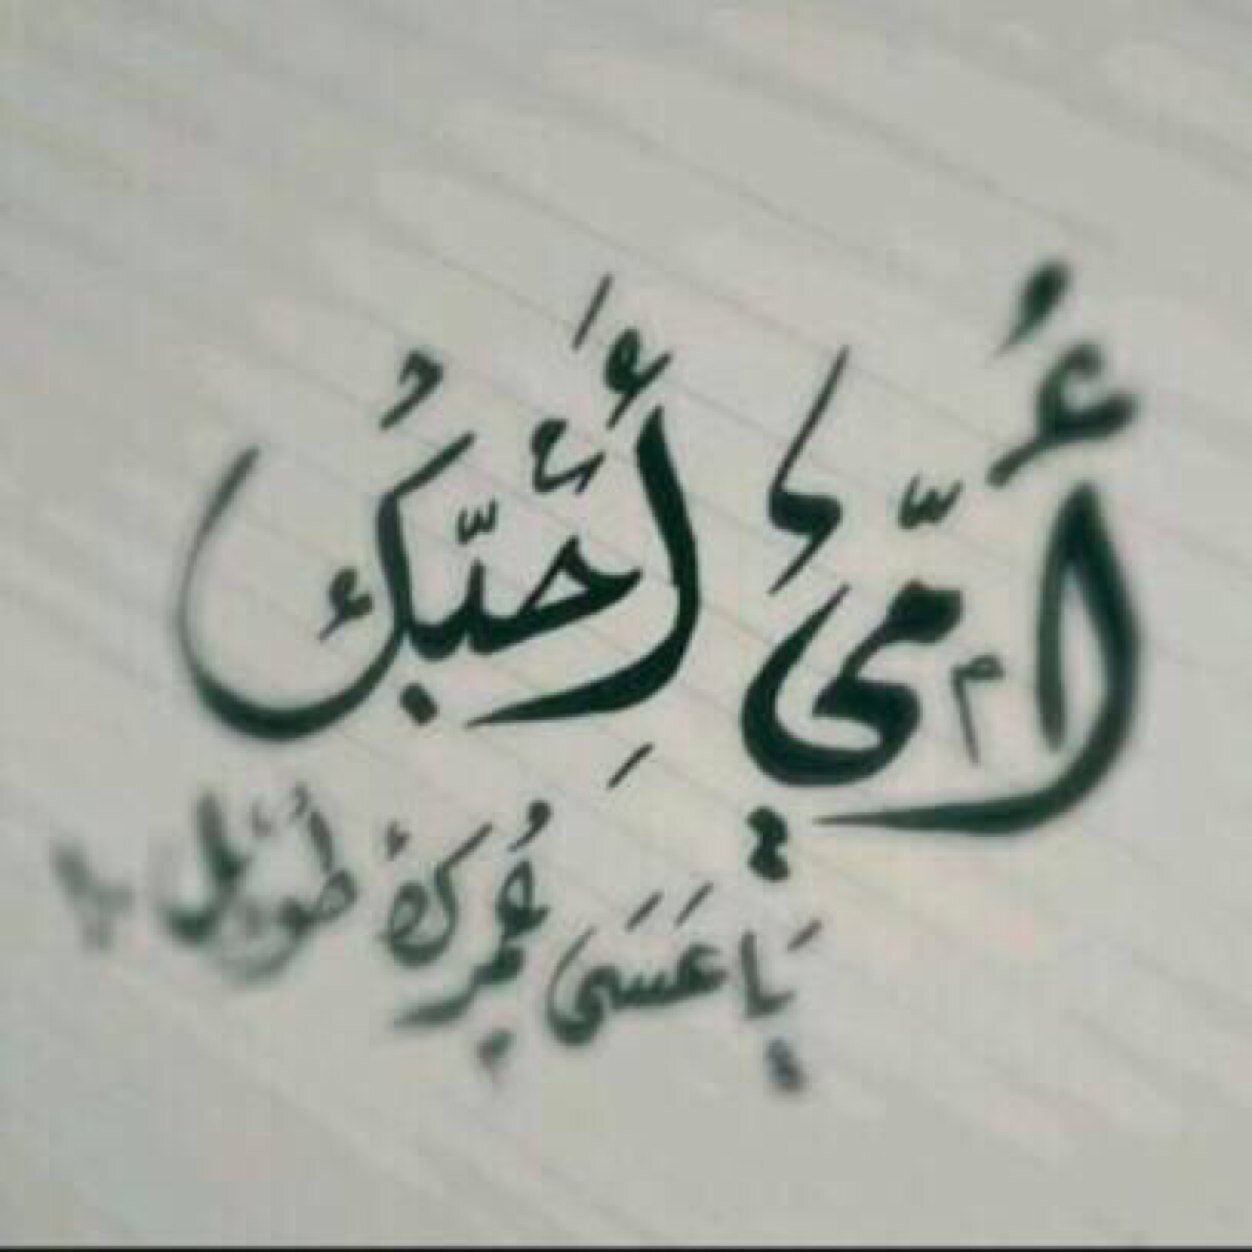 أُمّي أُحبّكِ
يَا عَسَى عُمرك طَويل